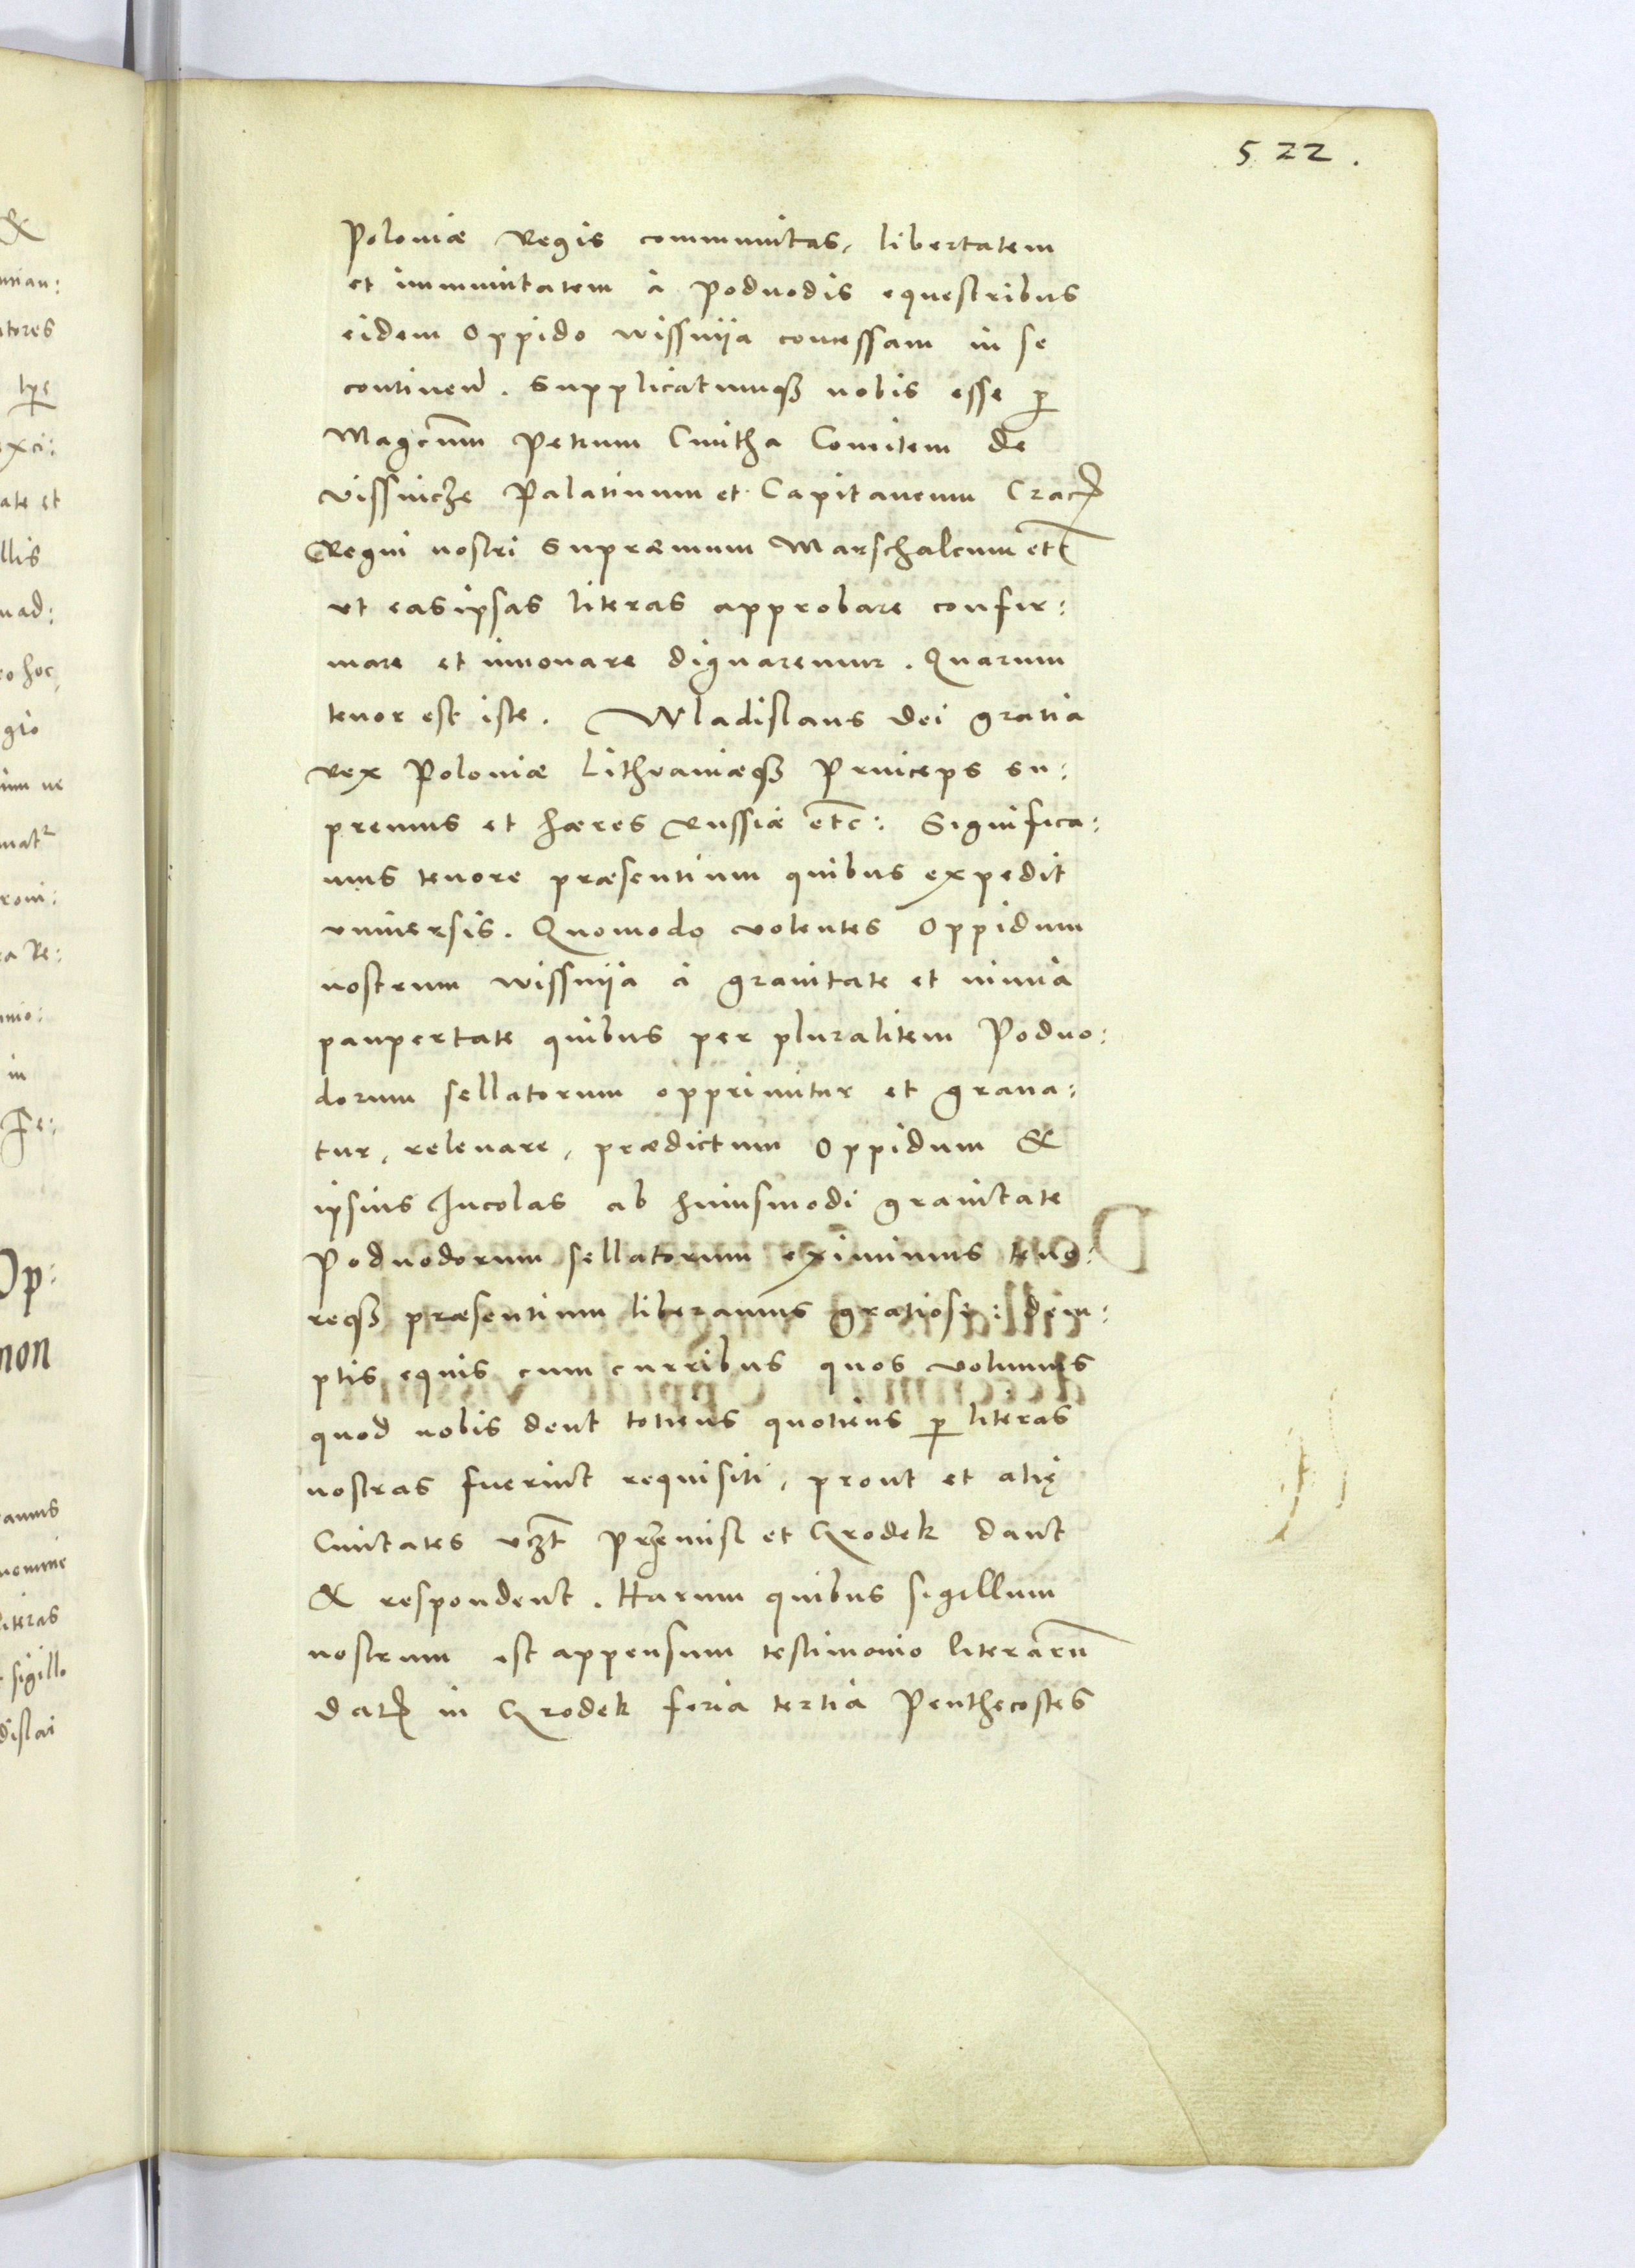 522.
Poloniæ Regis communitas, libertatem
et immunitatem à Podvodis equestribus
eidem Oppido Wissnija concessam in se
continen. Supplicatumq₃ nobis esse p
Magcum Petrum Cmitha Comitem de
Vissnicze Palatinum et Capitaneum Crac
Regni nostri Supræmum Marschalcum etc
ut eas ipsas literas approbare confir:
mare et innovare dignaremur. Quarum
tenor est iste. Wladislaus Dei gratia
Rex Poloniæ Lithvaniæq₃ Princeps su:
premus et hæres Russiæ etc: Significa:
mus tenore præsentium quibus expedit
vniuersis. Quomodo volentes Oppidum
nostrum Wissnija à grauitate et nimia
paupertate quibus per pluralitem Poduo:
dorum sellatorum opprimitur et graua:
tur, releuare, prædictum Oppidum &
ipsius Incolas ab huiusmodi grauitate
Poduodorum sellatorum eximimus teno:
req₃ præsentium liberamus gratiose: dem:
ptis equis cum curribus quos volumus
quod nobis dent totiens quotiens p literas
nostras fuerint requisiti, prout et alię
Ciuitates vzt Przemisl et Grodek dant
& respondent. Harum quibus sigillum
nostrum est appensum testimonio literarū
Dat in Grodek feria tertia Penthecostes